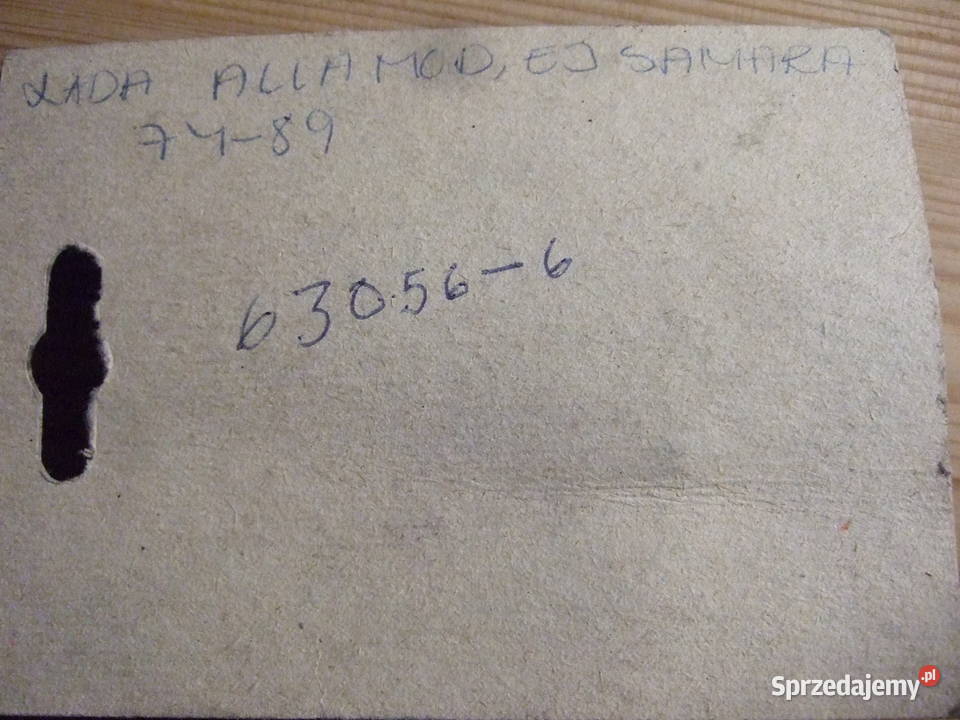 LADA ALLA MOD, EJ SAMARA
74-89
63056-6
Sprzedajemy.pl